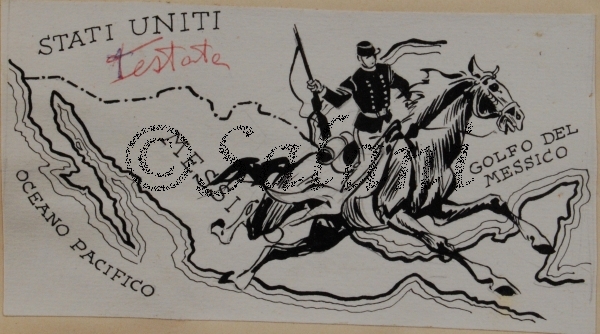 STATI UNITI
Testata
MESSI
GOLFO DEL
MESSICO
OCEANO PACIFICO